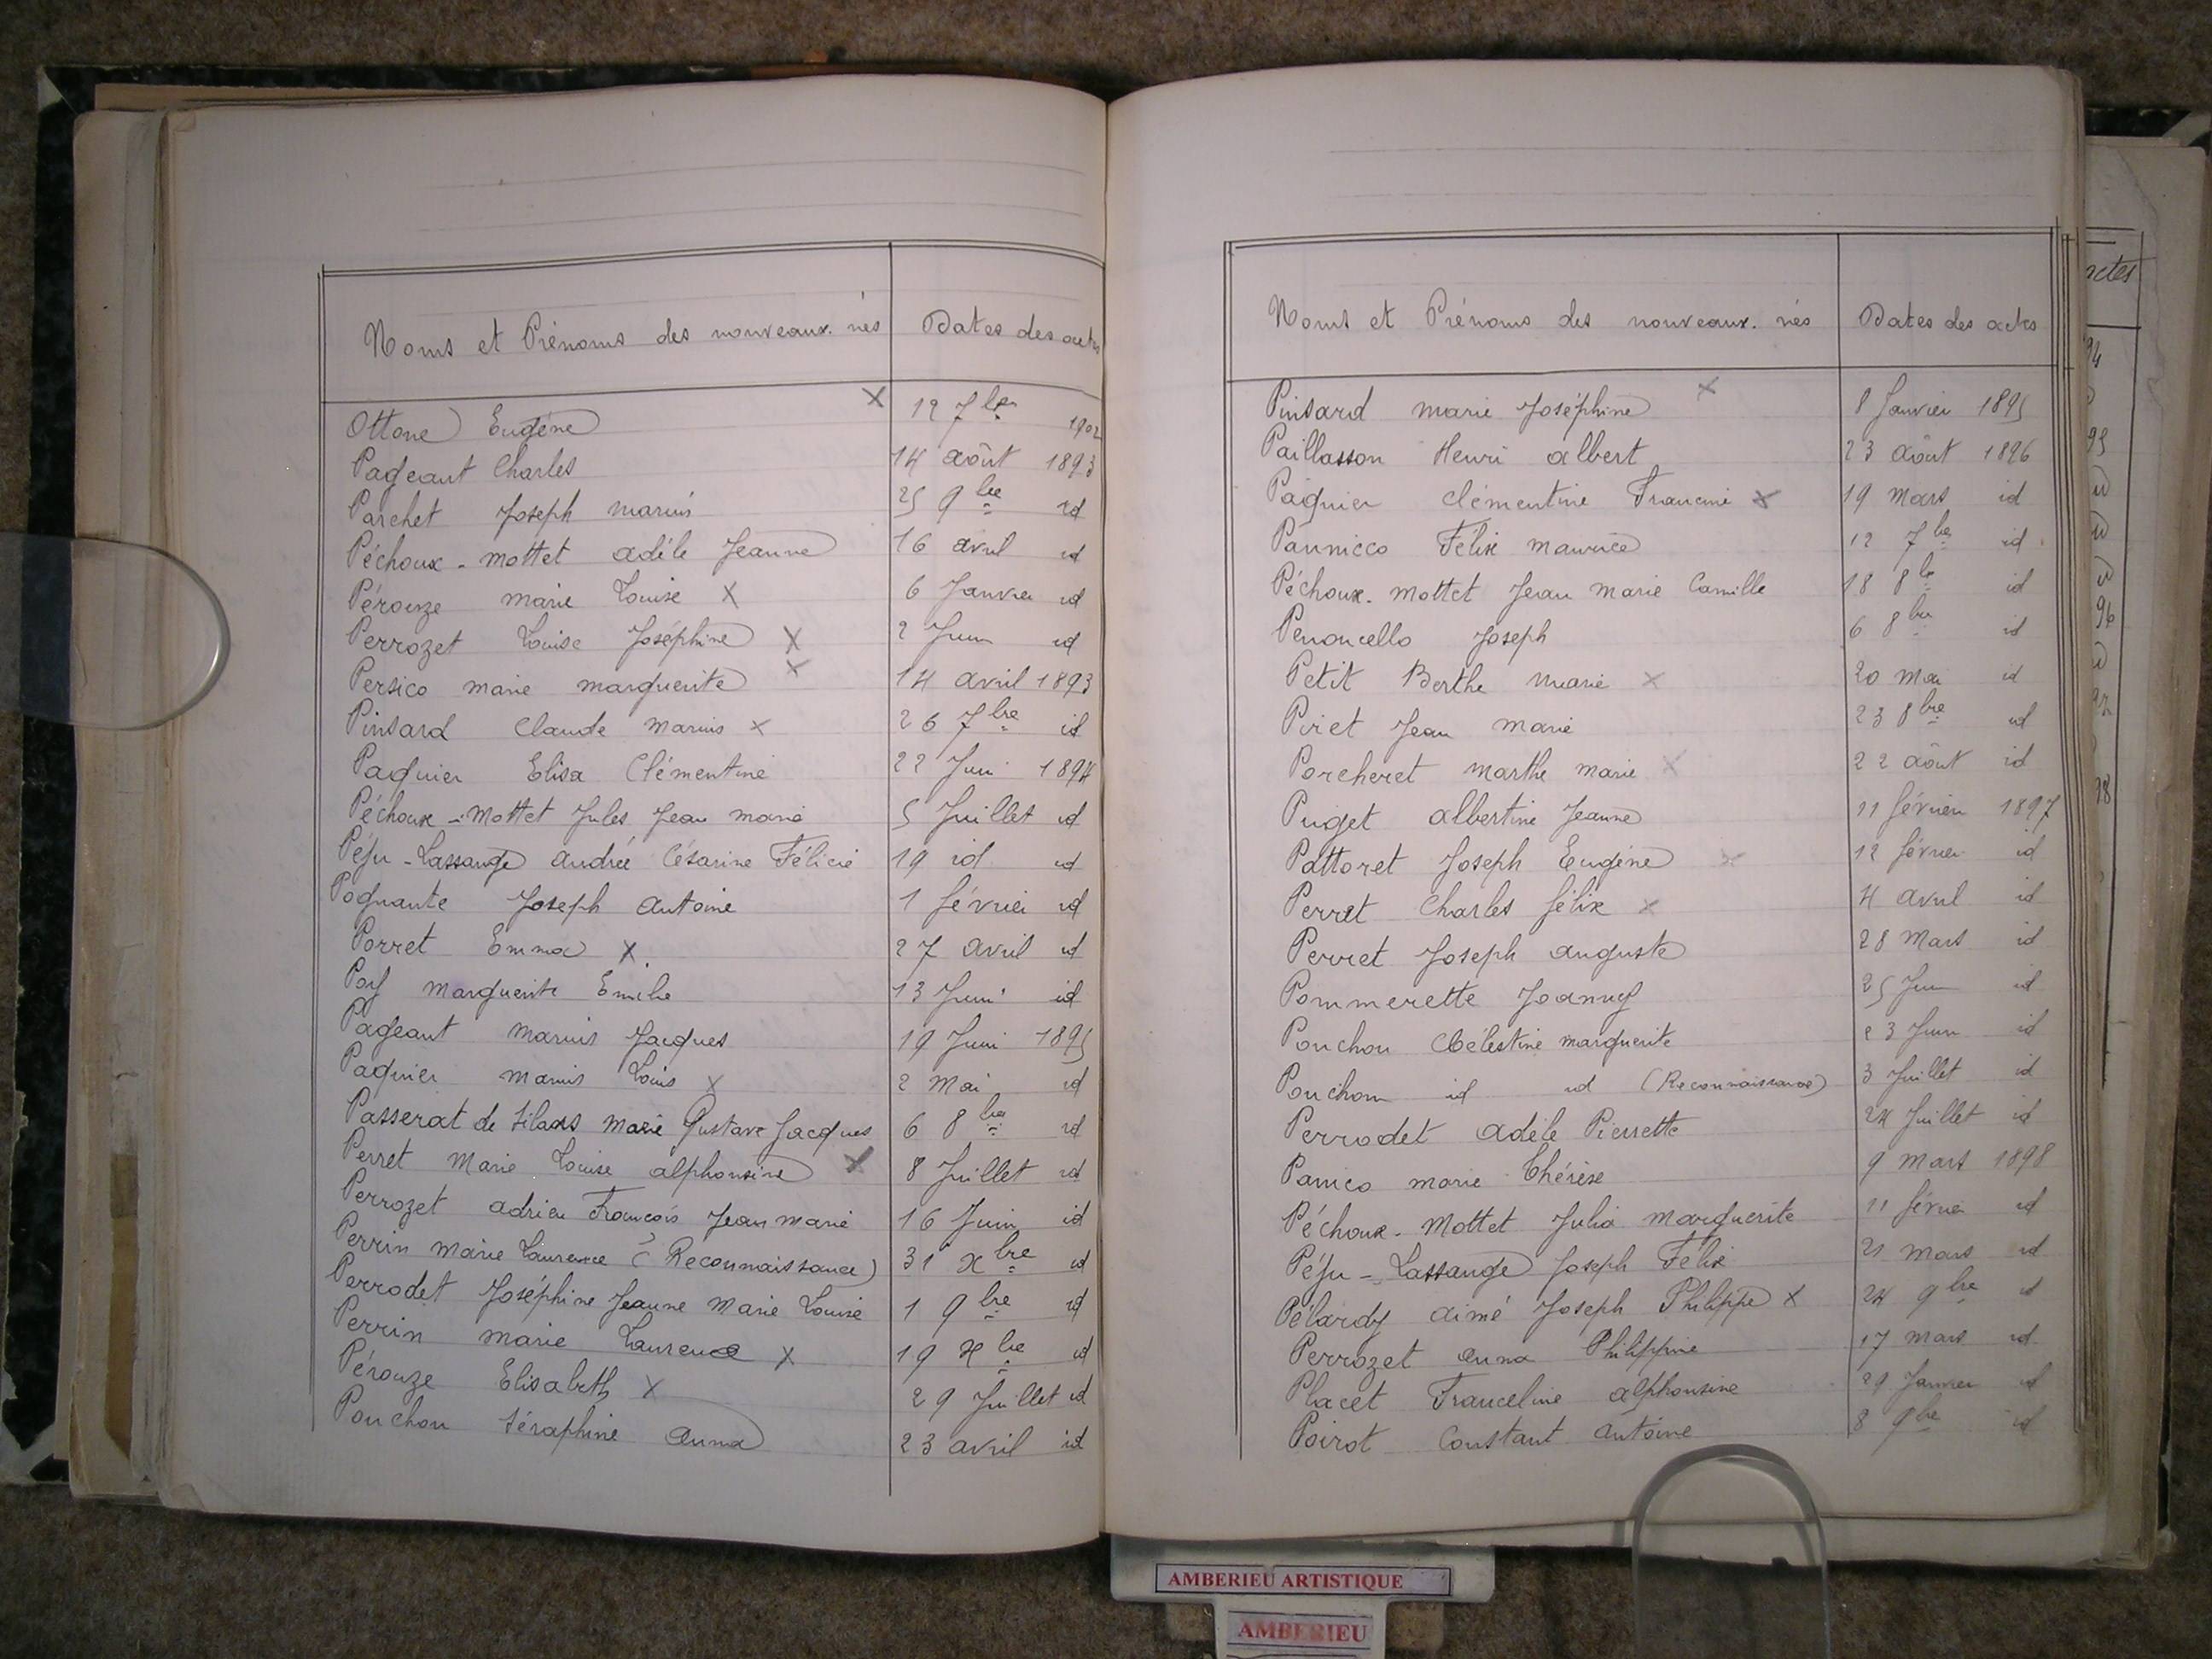 Noms et Prénoms des nouveaux-nés Dates des actes
Ottone Eugène X 12 7bre 1902
Pageaut Charles 14 août 1893
Parchet Joseph marius 25 9bre id
Péchoux-mottet adèle Jeanne 16 avril id
Pérouze marie Louise X 6 Janvier id
Perrozet Louise Joséphine X 2 Juin id
Persico marie marguerite X 14 avril 1893
Pinsard Claude marius X 26 7bre id
Paquier Elisa Clémentine 22 Juin 1894
Péchoux-Mottet Jules Jean marie 5 Juillet id
Péju-Lassange andrée Césarine Félicie 19 id id
Pognante Joseph Antoine 1 février id
Porret Emma X 27 avril id
Marguerite Emilie 13 Juin id
Pageaut marius Jacques 19 Juin 1895
Paquier marius Louis X 2 Mai id
Passerat de Silans Marie Gustave Jacques 6 8bre id
Perret Marie Louise alphonsine X 8 Juillet id
Perrozet adrien François Jean marie 16 Juin id
Perrin marie Laurence (Reconnaissance) 31 Xbre id
Perrodet Joséphine Jeanne Marie Louise 1 9bre id
Perrin marie Laurence X 19 Xbre id
Pérouze Elisabeth X 29 Juillet id
Pouchon Séraphine Anna 23 avril id
Noms et Prénoms des nouveaux-nés Dates des actes
Pinsard marie Joséphine X 8 Janvier 1895
Paillasson Henri albert 23 août 1896
Paquier Clémentine Francine X 19 mars id
Pannicco Félix maurice 12 7bre id
Péchoux-mottet Jean Marie Camille 18 8bre id
Penoncello Joseph 6 8bre id
Petit Berthe Marie X 20 mai id
Piret Jean Marie 23 8bre id
Porcheret marthe marie X 22 août id
Puget albertine Jeanne 11 février 1897
Pattoret Joseph Eugène X 12 février id
Perret Charles félix X 4 avril id
Perret Joseph auguste 28 Mars id
Pommerette Joanny 25 Juin id
Pouchon Célestine marguerite 23 Juin id
Pouchon id id (Reconnaissance) 3 Juillet id
Perrodet adèle Pierrette 24 Juillet id
Panico marie Thérèse 9 mars 1898
Péchoux-Mottet Julia marguerite 11 février id
Péju-Lassange Joseph Félix 21 mars id
Pélardy aimé Joseph Philippe X 24 9bre id
Perrozet anna Philippine 17 mars id
Placet Franceline alphonsine 29 Janvier id
Poirot Constant antoine 8 9bre id
actes
94
95
id
96
id
98
AMBERIEU ARTISTIQUE
AMBERIEU